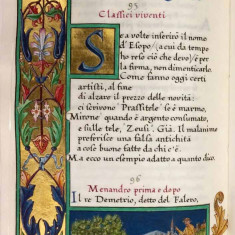 95
Classici viventi
Se a volte inserirò il nome
d'Esopo (a cui da tempo
ho reso ciò che devo) è per
la firma, non dimenticarlo.
Come fanno oggi certi
artisti, al fine
di alzare il prezzo delle novità:
ci scrivono "Prassitele" se è marmo,
"Mirone" quando è argento consumato,
e sulle tele, "Zeusi". Già. Il malanimo
preferisce una falsa antichità
a cose buone fatte da chi c'è.
Ma ecco un esempio adatto a quanto dico.
96
Menandro prima e dopo
Il re Demetrio, detto del Falero,